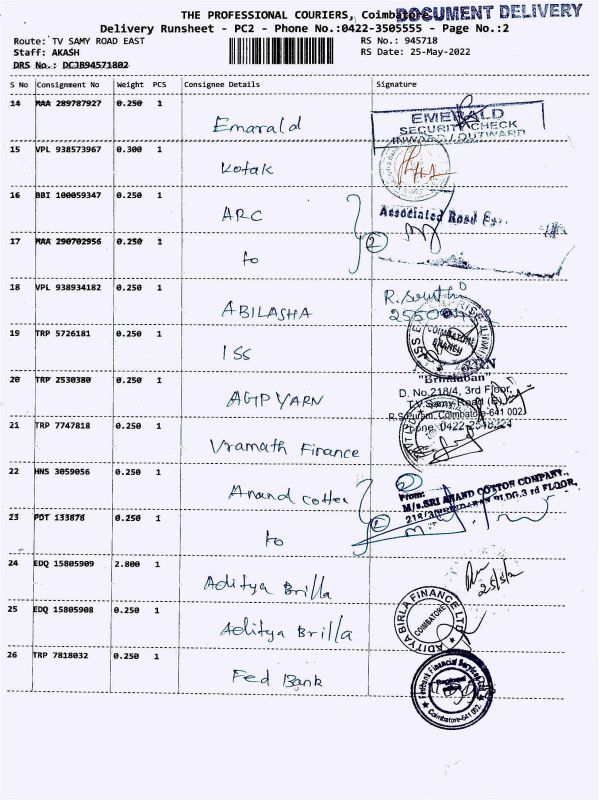 DOCUMENT DELIVERY
THE PROFESSIONAL COURIERS, Coimbatore
Delivery Runsheet - PC2 - Phone No.:0422-3505555 - Page No.:2
Route: TV SAMY ROAD EAST RS No.: 945718
Staff: AKASH RS Date: 25-May-2022
DRS No.: DCJB94571802
S No Consignment No Weight PCS Consignee Details Signature
14 MAA 289787927 0.250 1 Emarald
EMERALD
SECURITY CHECK
INWARD / OUTWARD
15 VPL 938573967 0.300 1 Kotak
16 BBI 100059347 0.250 1 ARC
Associated Road
2
17 MAA 290702956 0.250 1 to
18 VPL 938934182 0.250 1 ABILASHA
19 TRP 5726181 0.250 1 ISS
COIMBATORE
BRANCH
20 TRP 2530380 0.250 1 AGIP YARN
"Brindaban"
D. No.218/4, 3rd Floor,
T.V.Samy Road (E)
R.S.Puram, Coimbatore-641 002.
21 TRP 7747818 0.250 1 Vramath Finance
22 HNS 3059056 0.250 1 Anand cotten
2
From:
M/s.SRI ANAND COTTON COMPANY.,
3rd FLOOR,
23 POT 133878 0.250 1 to
24 EDQ 15805909 2.800 1 Aditya Brilla
25/5/2
25 EDQ 15805908 0.250 1 Aditya Brilla
ADITYA BIRLA FINANCE LTD
COIMBATORE
26 TRP 7818032 0.250 1 Fed Bank
Fedbank Financial Services Ltd
Coimbatore-641 002.